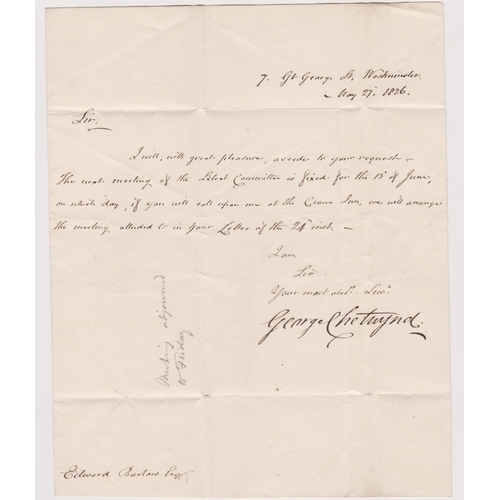 7. Gt George St, Westminster.
May 27. 1826.
Sir.
I will, with great pleasure, accede to your request.
The next meeting of the Select Committee is fixed for the of June,
on which day, if you will call upon me at the Crown Inn, we will arrange
the meeting alluded to in your Letter of the 24th inst.
I am
Sir
Your most obt. Servt.
George Chetwynd.
Meeting adjourned
to Friday
Edward Barlow Esqr.